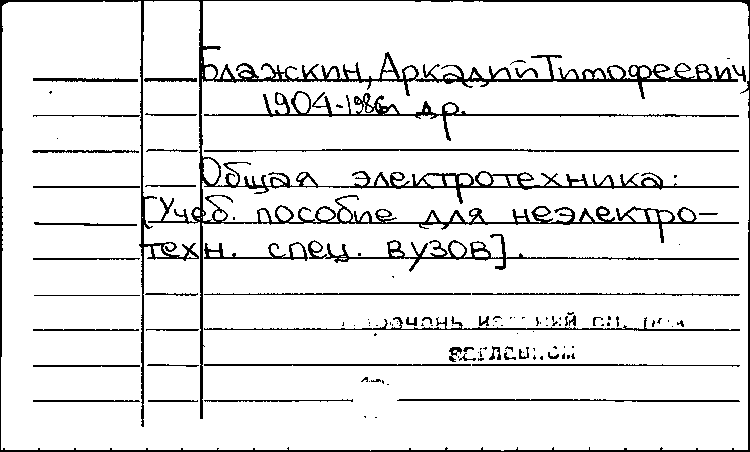 Блажкин, Аркадий Тимофеевич,
1904-1986 и др.
Общая электротехника:
[Учеб. пособие для неэлектро-
техн. спец. вузов].